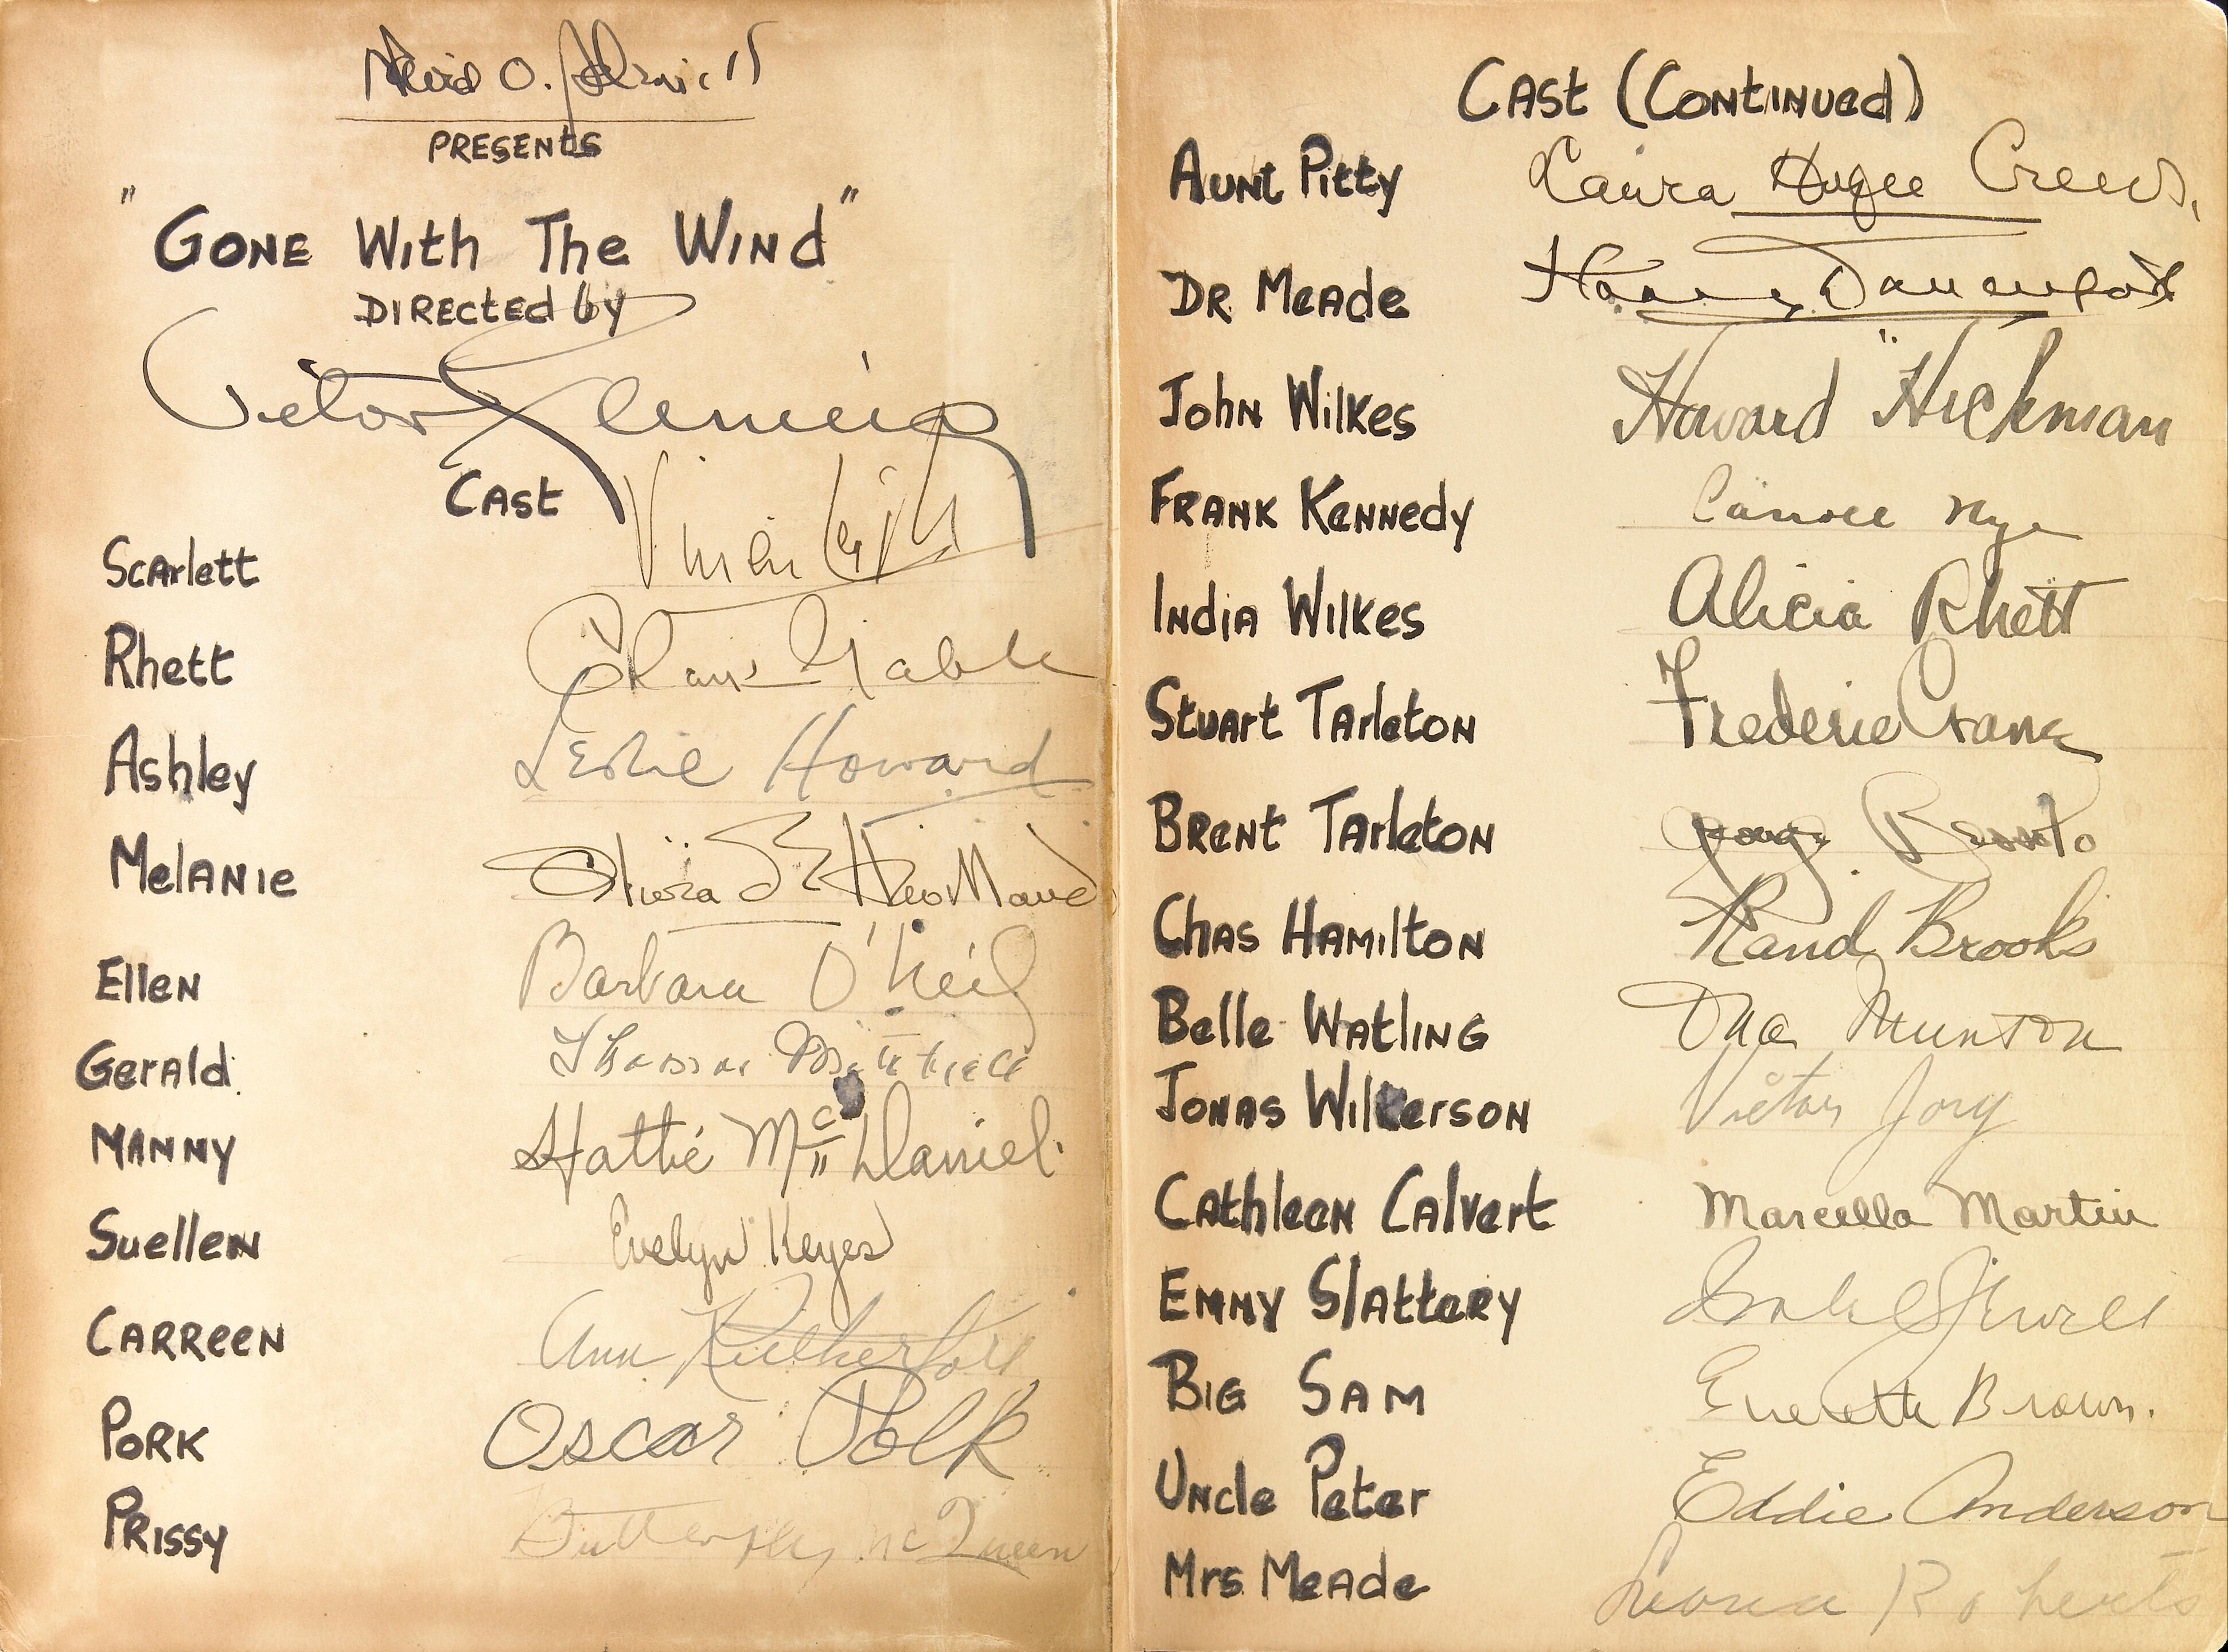 David O. Selznick
PRESENTS
"GONE With The WIND"
DIRECTED by
Victor Fleming
CAST
Scarlett Vivien Leigh
Rhett Clark Gable
Ashley Leslie Howard
MelANIE Olivia de Havilland
EllEN Barbara O'Neil
GerAld. Thomas Mitchell
MANNY Hattie McDaniel.
SuelleN Evelyn Keyes
CARReeN Ann Rutherford
PORK Oscar Polk
PRISSY Butterfly McQueen
CAST (CONTINUED)
AUNt Pitty Laura Hope Crews.
DR MeAde Harry Davenport
JohN Wilkes Howard Hickman
FRANK KeNNedy Carroll Nye
INdiA Wilkes Alicia Rhett
Stuart TArletoN Frederic Crane
BreNt TArletoN George Bessolo
ChAs HAMiltoN Rand Brooks
Belle WAtliNG Ona Munson
JoNAS WilkersoN Victor Jory
CAthleeN CAlvert Marcella Martin
EMMY SlAtteRy Isabel Jewell
BIG SAM Everett Brown.
UNcle Peter Eddie Anderson
Mrs MeAde Leona Roberts